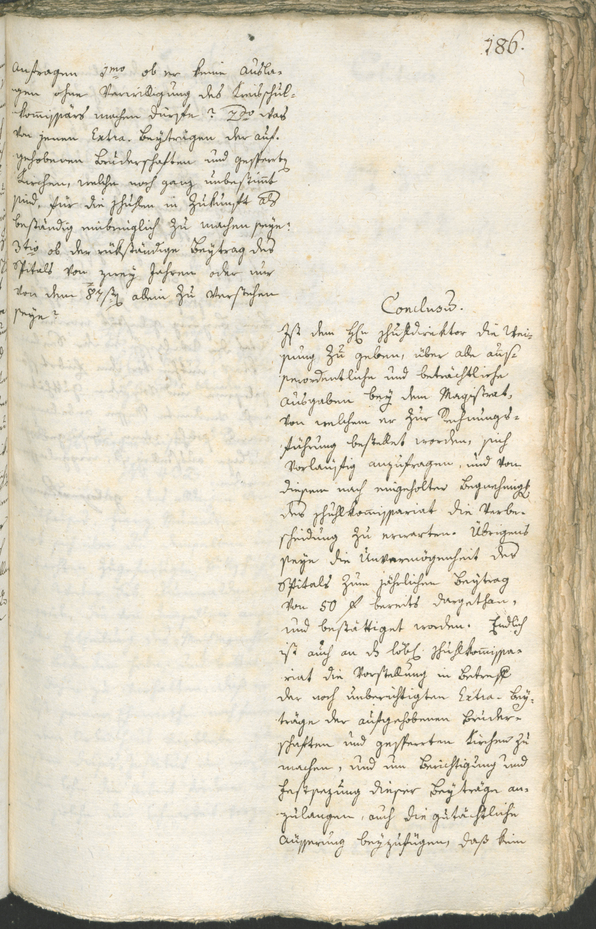 186.
anfragen 1mo ob er keine Ausla-
gen ohne Verwilligung des Kreisschul-
kommissärs machen dürfte? 2do was
von jenen Extra-Beyträgen der auf-
gehobenen Bruderschaften und gesperrte
Kirchen, welche noch ganz unbestimt
sind, für die Schulen in Zukunft als
beständig einbringlich zu machen seye?
3tio ob der rükständige Beytrag des
Spitals von zwey Jahren oder nur
von dem allein zu verstehen
seye?
Conclusū.
Ist dem Hn Schuldirektor die Wei-
sung zu geben, über alle aus-
serordentliche und beträchtliche
Ausgaben bey dem Magistrat,
von welchem er zur Rechnungs-
führung bestellet worden, sich
vorläufig anzufragen, und von
diesem nach eingeholter Begnehmigg
des Schulkommissariat die Verbe-
scheidung zu erwarten. Übrigens
seye die Unvermögenheit des
Spitals zum jährlichen Beytrag
von 50 f bereits dargethan,
und bestättiget worden. Endlich
ist auch an ds löbl. Schulkommissa-
riat die Vorstellung in Betreff
der noch unberichtigten Extra-Bey-
träge der aufgehobenen Bruder-
schaften und gesperrten Kirchen zu
machen, und um Berichtigung und
Festsezung dieser Beyträge an-
zulangen, auch die gutächtliche
Äusserung beyzufügen, daß kein